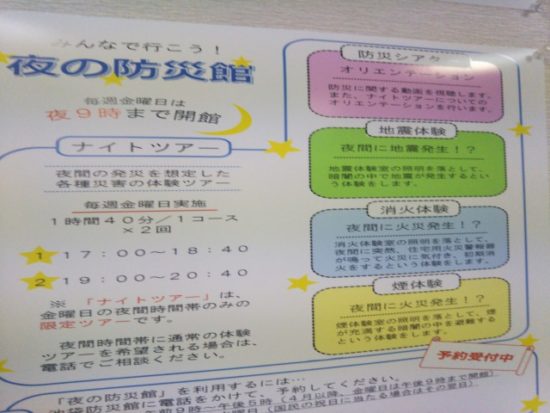 みんなで行こう！
夜の防災館
毎週金曜日は
夜9時まで開館
ナイトツアー
夜間の発災を想定した
各種災害の体験ツアー
毎週金曜日実施
1時間40分/1コース
×2回
1 17:00～18:40
2 19:00～20:40
※ 「ナイトツアー」は、
金曜日の夜間時間帯のみの
限定ツアーです。
夜間時間帯に通常の体験
ツアーを希望される場合は、
電話でご相談ください。
防災シアター
オリエンテーション
防災に関する動画を視聴します。
また、ナイトツアーについての
オリエンテーションを行います。
地震体験
夜間に地震発生！？
地震体験室の照明を落として、
暗闇の中で地震が発生するとい
う体験をします。
消火体験
夜間に火災発生！？
消火体験室の照明を落として、
夜間に突然、住宅用火災警報器
が鳴って火災に気付き、初期消
火をするという体験をします。
煙体験
夜間に火災発生！？
煙体験室の照明を落として、煙
が充満する暗闇の中を避難する
という体験をします。
予約受付中
「夜の防災館」を利用するには…
池袋防災館に電話をかけて、予約してください。
午前9時～午後5時…（4月以降、金曜日は午後9時まで開館）
曜日（国民の祝日に当たる場合はその翌日）